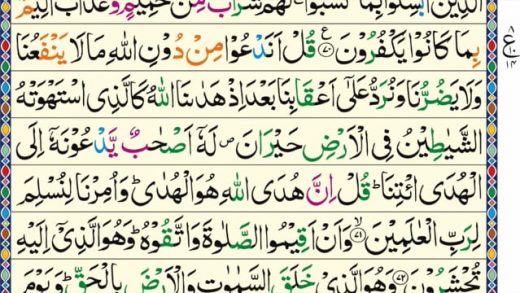 الَّذِيْنَ اُبْسِلُوْا بِمَا كَسَبُوْا ۚ لَهُمْ شَرَابٌ مِّنْ حَمِيْمٍ وَّعَذَابٌ اَلِيْمٌۢ
بِمَا كَانُوْا يَكْفُرُوْنَ ﴿۷۰﴾ قُلْ اَنَدْعُوْا مِنْ دُوْنِ اللّٰهِ مَا لَا يَنْفَعُنَا
وَلَا يَضُرُّنَا وَنُرَدُّ عَلٰٓى اَعْقَابِنَا بَعْدَ اِذْ هَدٰىنَا اللّٰهُ كَالَّذِى اسْتَهْوَتْهُ
الشَّيٰطِيْنُ فِى الْاَرْضِ حَيْرَانَ ۖ لَهٗٓ اَصْحٰبٌ يَّدْعُوْنَهٗٓ اِلَى
الْهُدَى ائْتِنَا ؕ قُلْ اِنَّ هُدَى اللّٰهِ هُوَ الْهُدٰى ؕ وَاُمِرْنَا لِنُسْلِمَ
لِرَبِّ الْعٰلَمِيْنَ ﴿۷۱﴾ وَاَنْ اَقِيْمُوا الصَّلٰوةَ وَاتَّقُوْهُ ؕ وَهُوَ الَّذِىْٓ اِلَيْهِ
تُحْشَرُوْنَ ﴿۷۲﴾ وَهُوَ الَّذِىْ خَلَقَ السَّمٰوٰتِ وَالْاَرْضَ بِالْحَقِّ ؕ وَيَوْمَ
۸
ع
۱۴